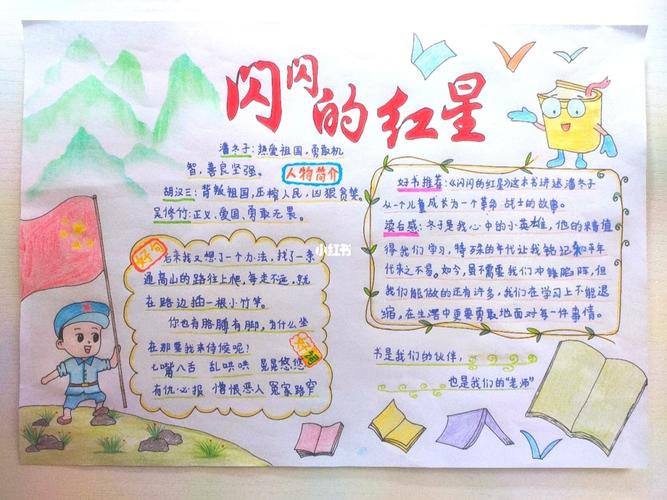 闪闪的红星
潘冬子:热爱祖国,勇敢机
智,善良坚强。
人物简介
胡汉三:背叛祖国,压榨人民,凶狠贪婪。
吴修竹:正义,爱国,勇敢无畏。
好句
后来我又想了一个办法,找了一条
通高山的路往上爬,每走不远,就
在路边拍一根小竹笋。
你也有胳膊有脚,为什么坐
在那要我来侍候呢?
好词
七嘴八舌 乱哄哄 晃晃悠悠
有仇必报 憎恨恶人 冤家路窄
小红书
好书推荐:《闪闪的红星》这本书讲述潘冬子
从一个儿童成长为一个革命战士的故事。
读后感:冬子是我心中的小英雄,他的精神值
得我们学习,特殊的年代让我铭记和平年
代来之不易。如今,虽不需要我们冲锋陷阵,但
我们能做的还有许多,我们在学习上不能退
缩,在生活中更要勇敢地面对每一件事情。
书是我们的伙伴,
也是我们的“老师”